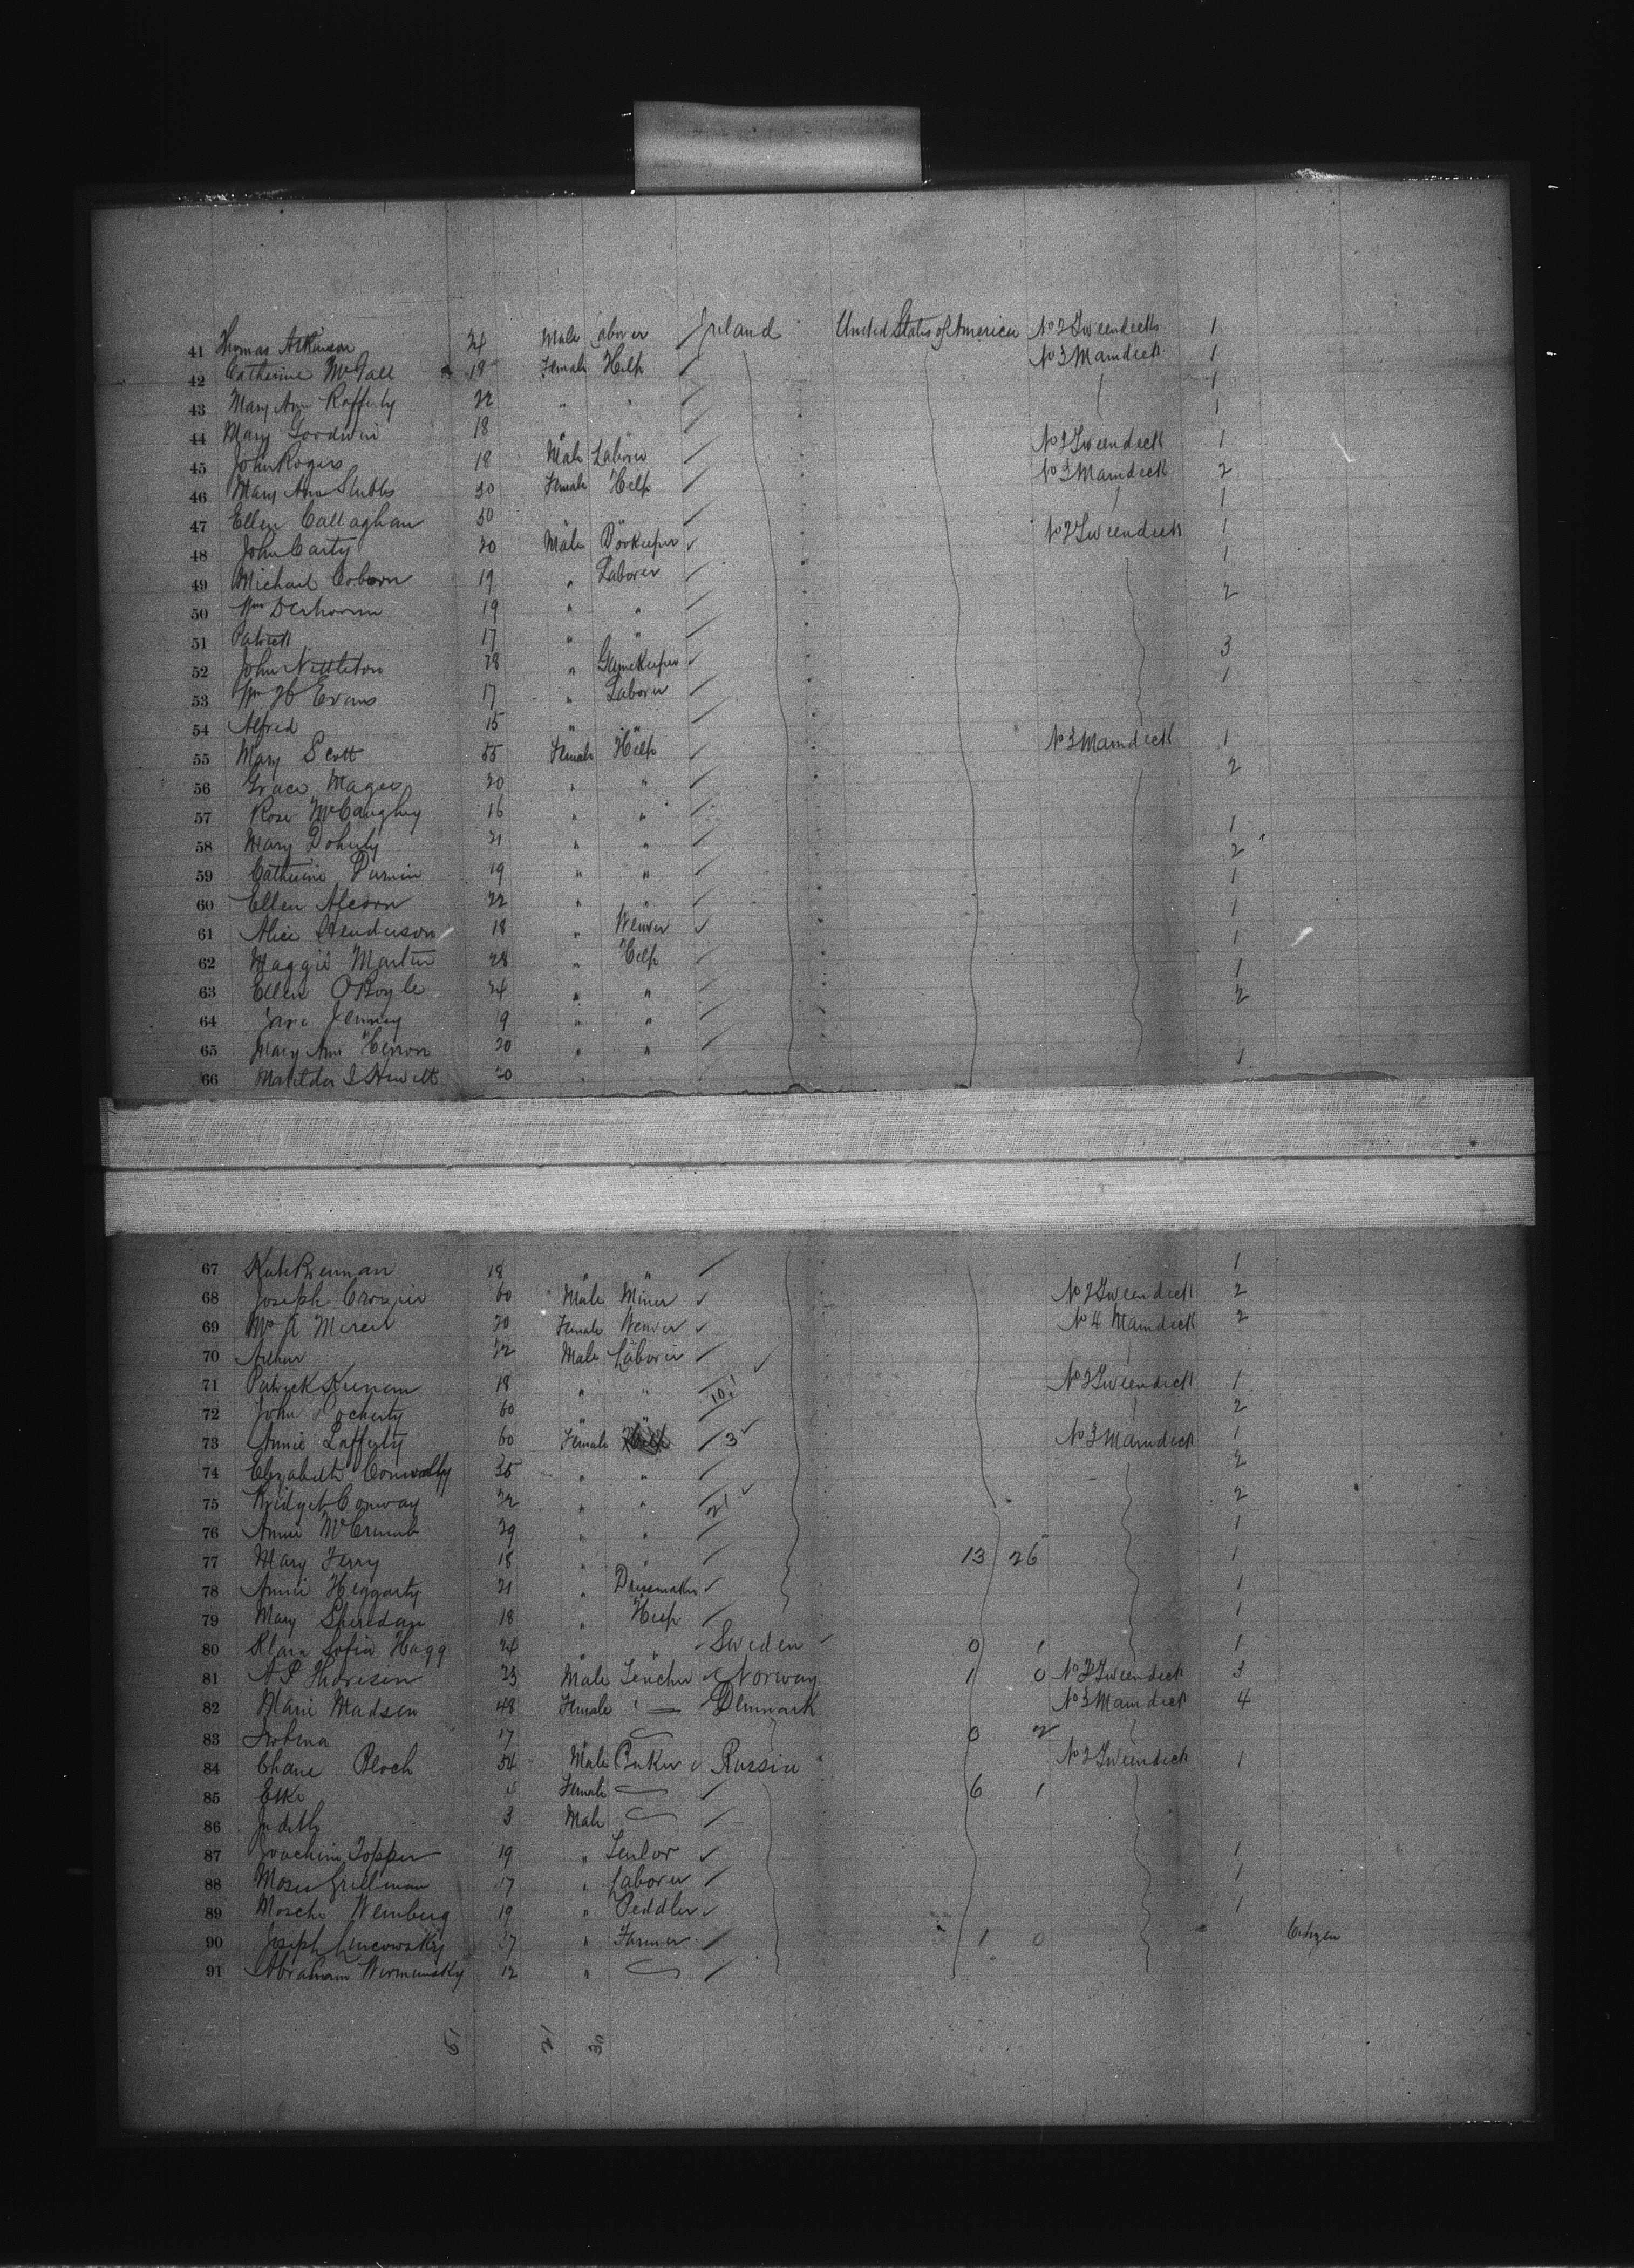 41 Thomas Atkinson 24 Male Laborer Ireland United States of America No 2 Tweendeck 1
42 Catherine McGall 18 Female Help No 3 Maindeck 1
43 Mary Ann Rafferty 22 " " 1
44 Mary Goodwin 18 " " 1
45 John Rogers 18 Male Laborer No 2 Tweendeck 1
46 Mary Ann Stubbs 30 Female Help No 3 Maindeck 2
47 Ellen Callaghan 50 " " 1
48 John Carty 20 Male No 2 Tweendeck 1
49 Michael Coborn 19 " Laborer 1
50 Wm 19 " " 2
51 Patrick 17 " "
52 John Nettleton 28 " Gamekeeper 3
53 Wm H Evans 17 " Laborer 1
54 Alfred 15 " "
55 Mary Scott 55 Female Help No 3 Maindeck 1
56 Grace Magee 20 " " 2
57 Rose McCaughey 16 " "
58 Mary Doherty 21 " " 1
59 Catherine 19 " " 2
60 Ellen Alcorn 22 " " 1
61 Alice Henderson 18 " Weaver 1
62 Maggie Martin 28 " Help 1
63 Ellen OBoyle 24 " " 1
64 Jenney 9 " " 2
65 Mary Ann Herron 20 " "
66 Matilda J Hewitt 20 " 1
67 Kate Brennan 18 " " 1
68 Joseph Crozier 60 Male Miner No 2 Tweendeck 2
69 A Mercer 20 Female Weaver No 4 Maindeck 2
70 Arthur 22 Male Laborer
71 Patrick 18 " " 10 No 2 Tweendeck 1
72 John Docherty 60 " " 2
73 Annie Lafferty 60 Female 3 No 3 Maindeck 1
74 Elizabeth Connolly 35 " " 2
75 Bridget Conway 22 " " 21 2
76 Annie 29 " " 1
77 Mary Ferry 18 " " 13 26 1
78 Annie Heggarty 21 " Dressmaker 1
79 Mary Sheridan 18 " Help 1
80 Klara Sofia Hagg 24 " " Sweden 0 1 1
81 A P Thoresen 23 Male Norway 1 0 No 2 Tweendeck 3
82 Marie Madsen 48 Female Denmark No 3 Maindeck 4
83 17 " 0 2
84 Chane Bloch 54 Male Russia No 2 Tweendeck 1
85 Eske Female 6 1
86 Judith 3 Male
87 Joachim Topper 19 " 1
88 Moses Grillman 17 " Laborer 1
89 Mosche Weinberg 19 " Peddler 1
90 Joseph 37 " Farmer 1 0 Citizen
91 Abraham 12 "
51 21 30